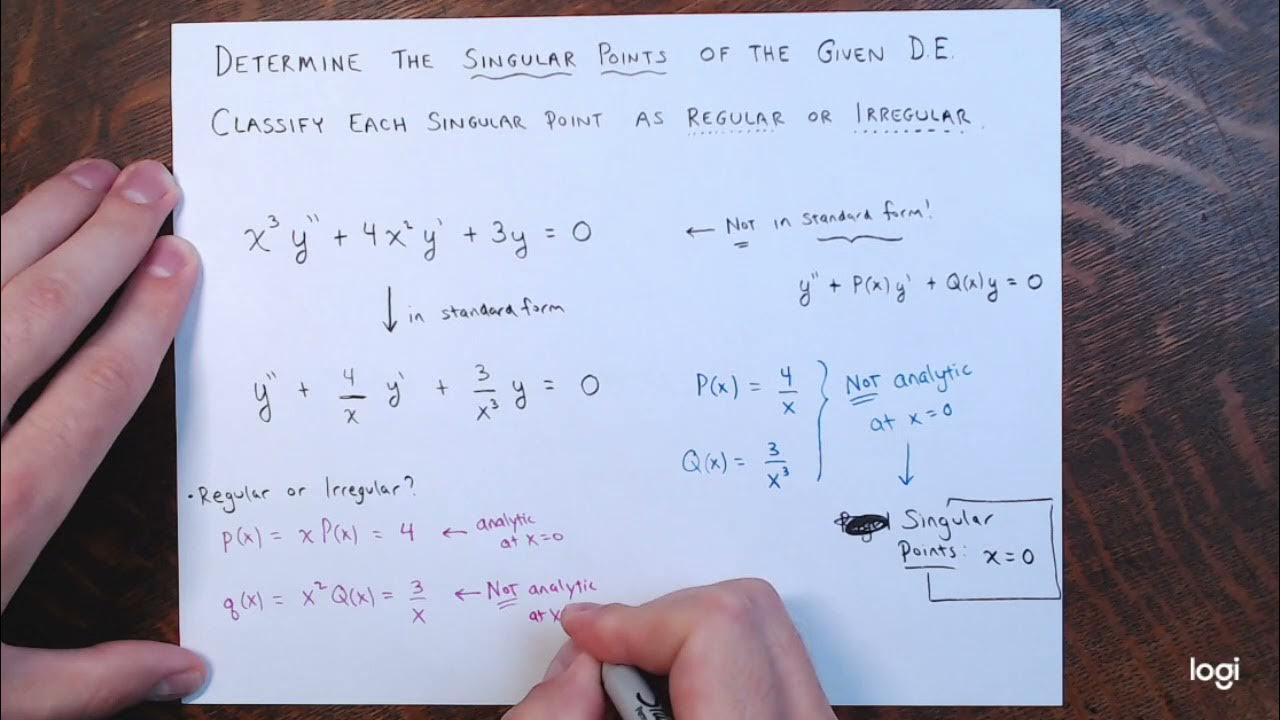 DETERMINE THE SINGULAR POINTS OF THE GIVEN D.E.
CLASSIFY EACH SINGULAR POINT AS REGULAR OR IRREGULAR.
x³y'' + 4x²y' + 3y = 0
← NOT in standard form!
y'' + P(x)y' + Q(x)y = 0
↓ in standard form
y'' + 4/x y' + 3/x³ y = 0
P(x) = 4/x
Q(x) = 3/x³
NOT analytic
at x=0
↓
Singular
Points: x=0
• Regular or Irregular?
p(x) = xP(x) = 4 ← analytic
at x=0
q(x) = x²Q(x) = 3/x ← NOT analytic
at x
logi